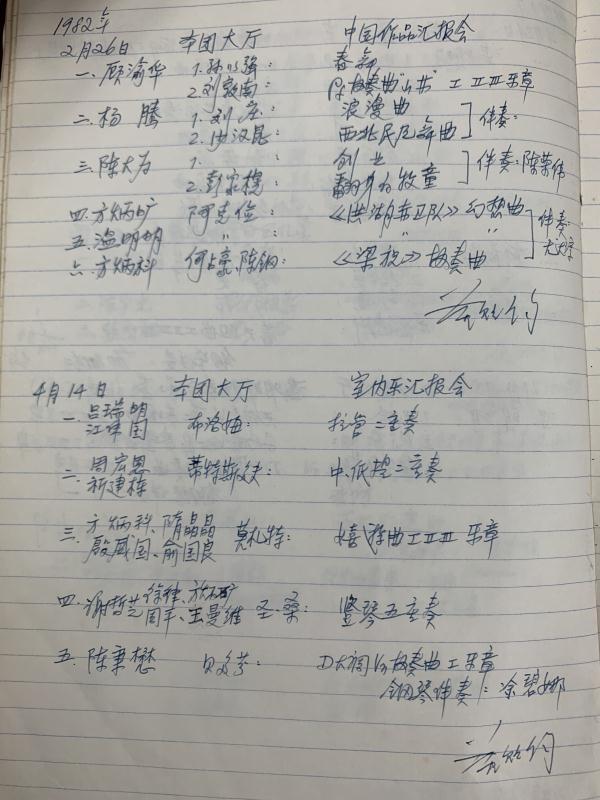 1982年
2月26日 本团大厅 中国作品汇报会
一.顾渝华 1.孙以强: 春舞
2.刘敦南: P.协奏曲"山林" I II III 乐章
二.杨腾 1.刘庄: 浪漫曲
2.沙汉昆: 西北民厄舞曲 伴奏:
三.陈大为 1. : 创业
2.彭家榥: 翻身的牧童 伴奏:陈荣伟
四.方炳旷 阿克俭: 《洪湖赤卫队》幻想曲
五.温明明 〃 : 〃 伴奏:
六.方炳科 何占豪、陈钢: 《梁祝》协奏曲
4月14日 本团大厅 室内乐汇报会
一.吕瑞明 江泽国 布洛姆: 拉管二重奏
二.周宏恩 靳建栋 蒂特斯多夫: 中、低提二重奏
三.方炳科、隋晶晶 殷威国、俞国良 莫札特: 嬉游曲 I II III 乐章
四.谢哲芝 方炳旷 王曼维 圣·桑: 竖琴五重奏
五.陈秉懋 贝多芬: D大调Vn协奏曲 I 乐章
钢琴伴奏:涂碧娜